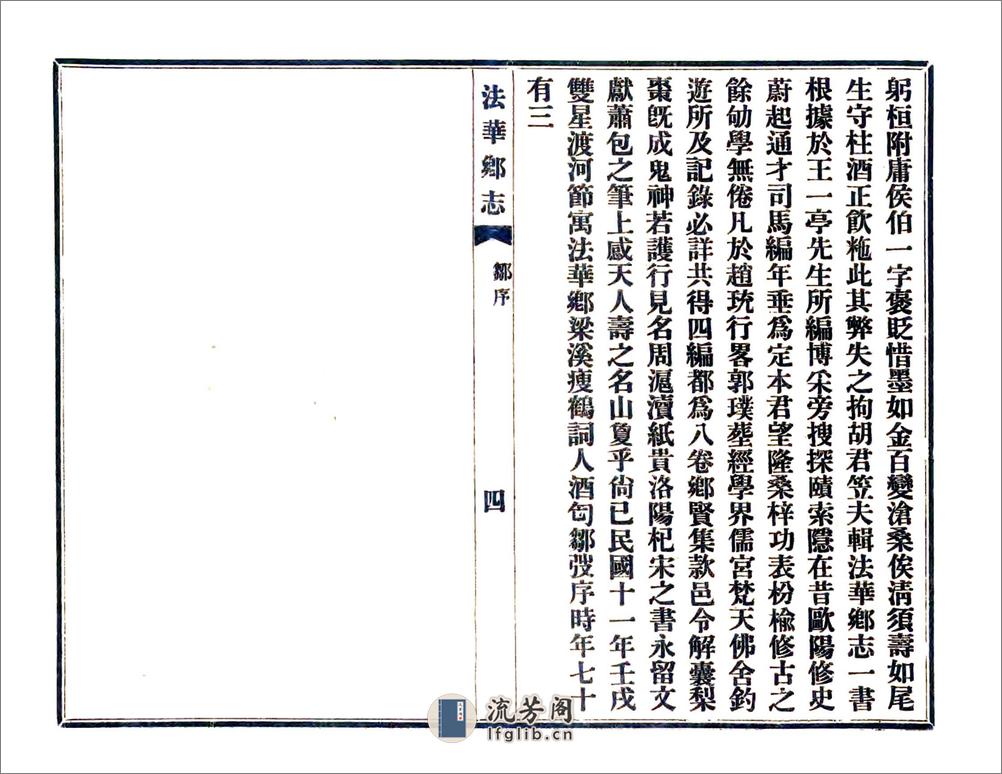 躬桓附庸侯伯一字褒貶惜墨如金百變滄桑俟淸須壽如尾
生守柱酒正飮粚此其弊失之拘胡君笠夫輯法華鄕志一書
根據於王一亭先生所編博采旁搜探賾索隱在昔歐陽修史
蔚起通才司馬編年垂爲定本君望隆桑梓功表枌楡修古之
餘劬學無倦凡於趙珫行畧郭璞塟經學界儒宮梵天佛舍釣
遊所及記錄必詳共得四編都爲八卷鄕賢集款邑令解囊梨
棗旣成鬼神若護行見名周滬瀆紙貴洛陽杞宋之書永留文
獻蕭包之筆上感天人壽之名山敻乎尙已民國十一年壬戌
雙星渡河節寓法華鄕梁溪瘦鶴詞人酒匄鄒弢序時年七十
有三
法華鄕志
鄒序
四
流芳阁
lfglib.cn